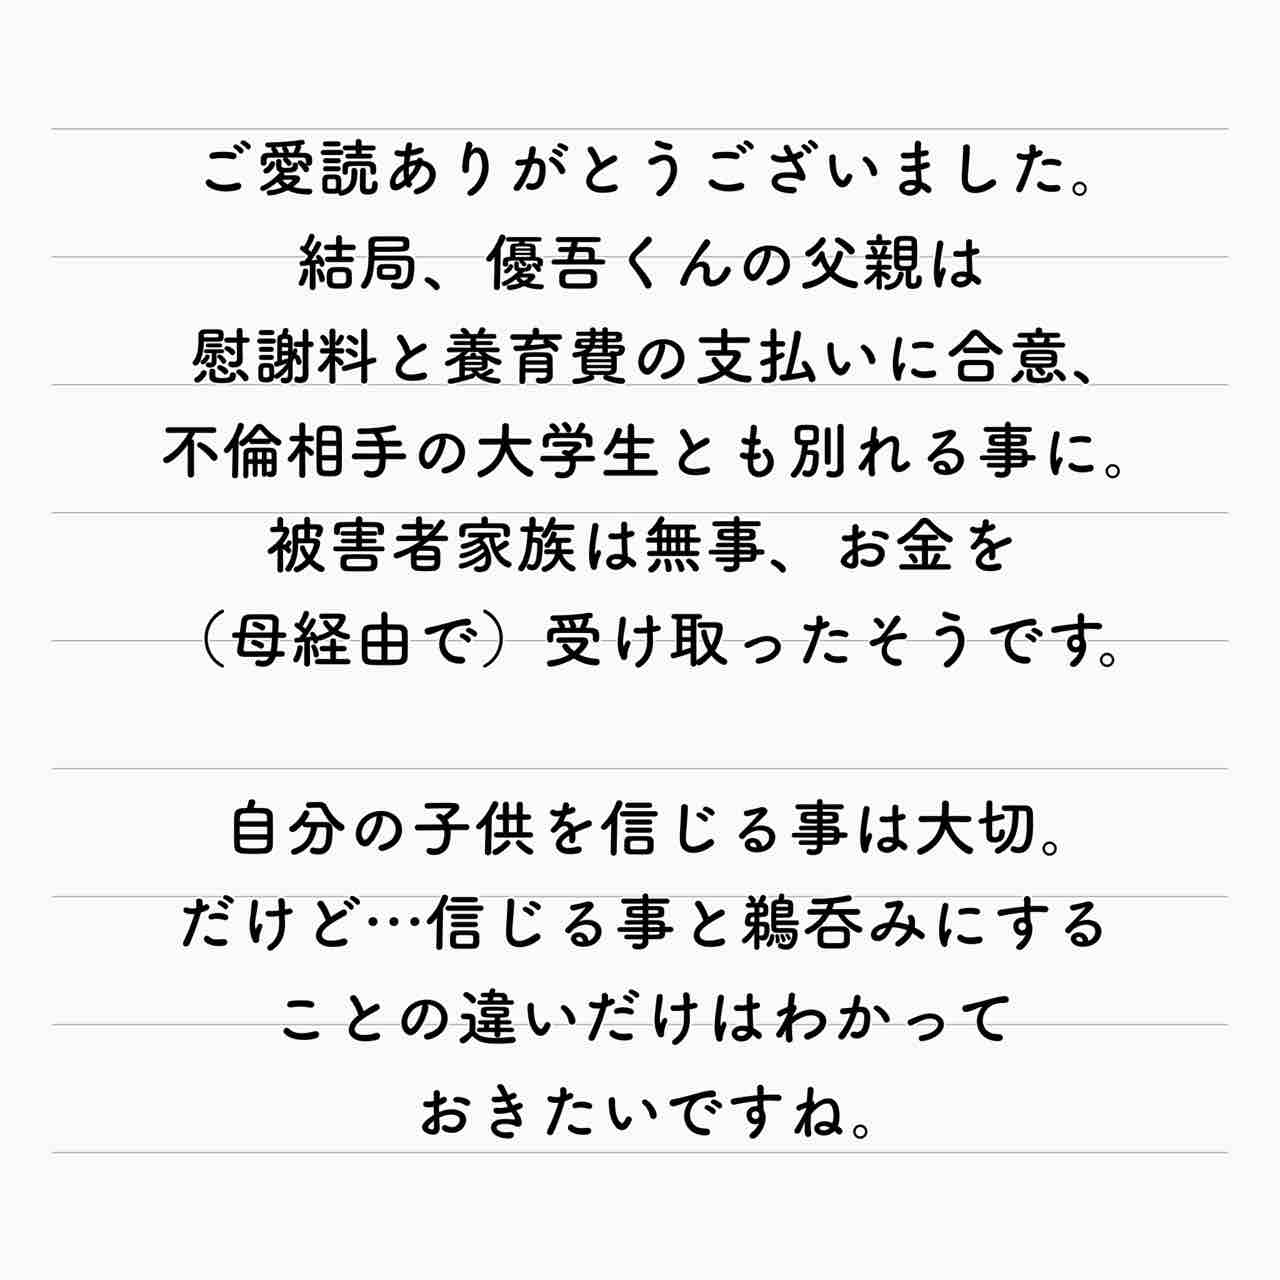 ご愛読ありがとうございました。
結局、優吾くんの父親は
慰謝料と養育費の支払いに合意、
不倫相手の大学生とも別れる事に。
被害者家族は無事、お金を
（母経由で）受け取ったそうです。
自分の子供を信じる事は大切。
だけど…信じる事と鵜呑みにする
ことの違いだけはわかって
おきたいですね。